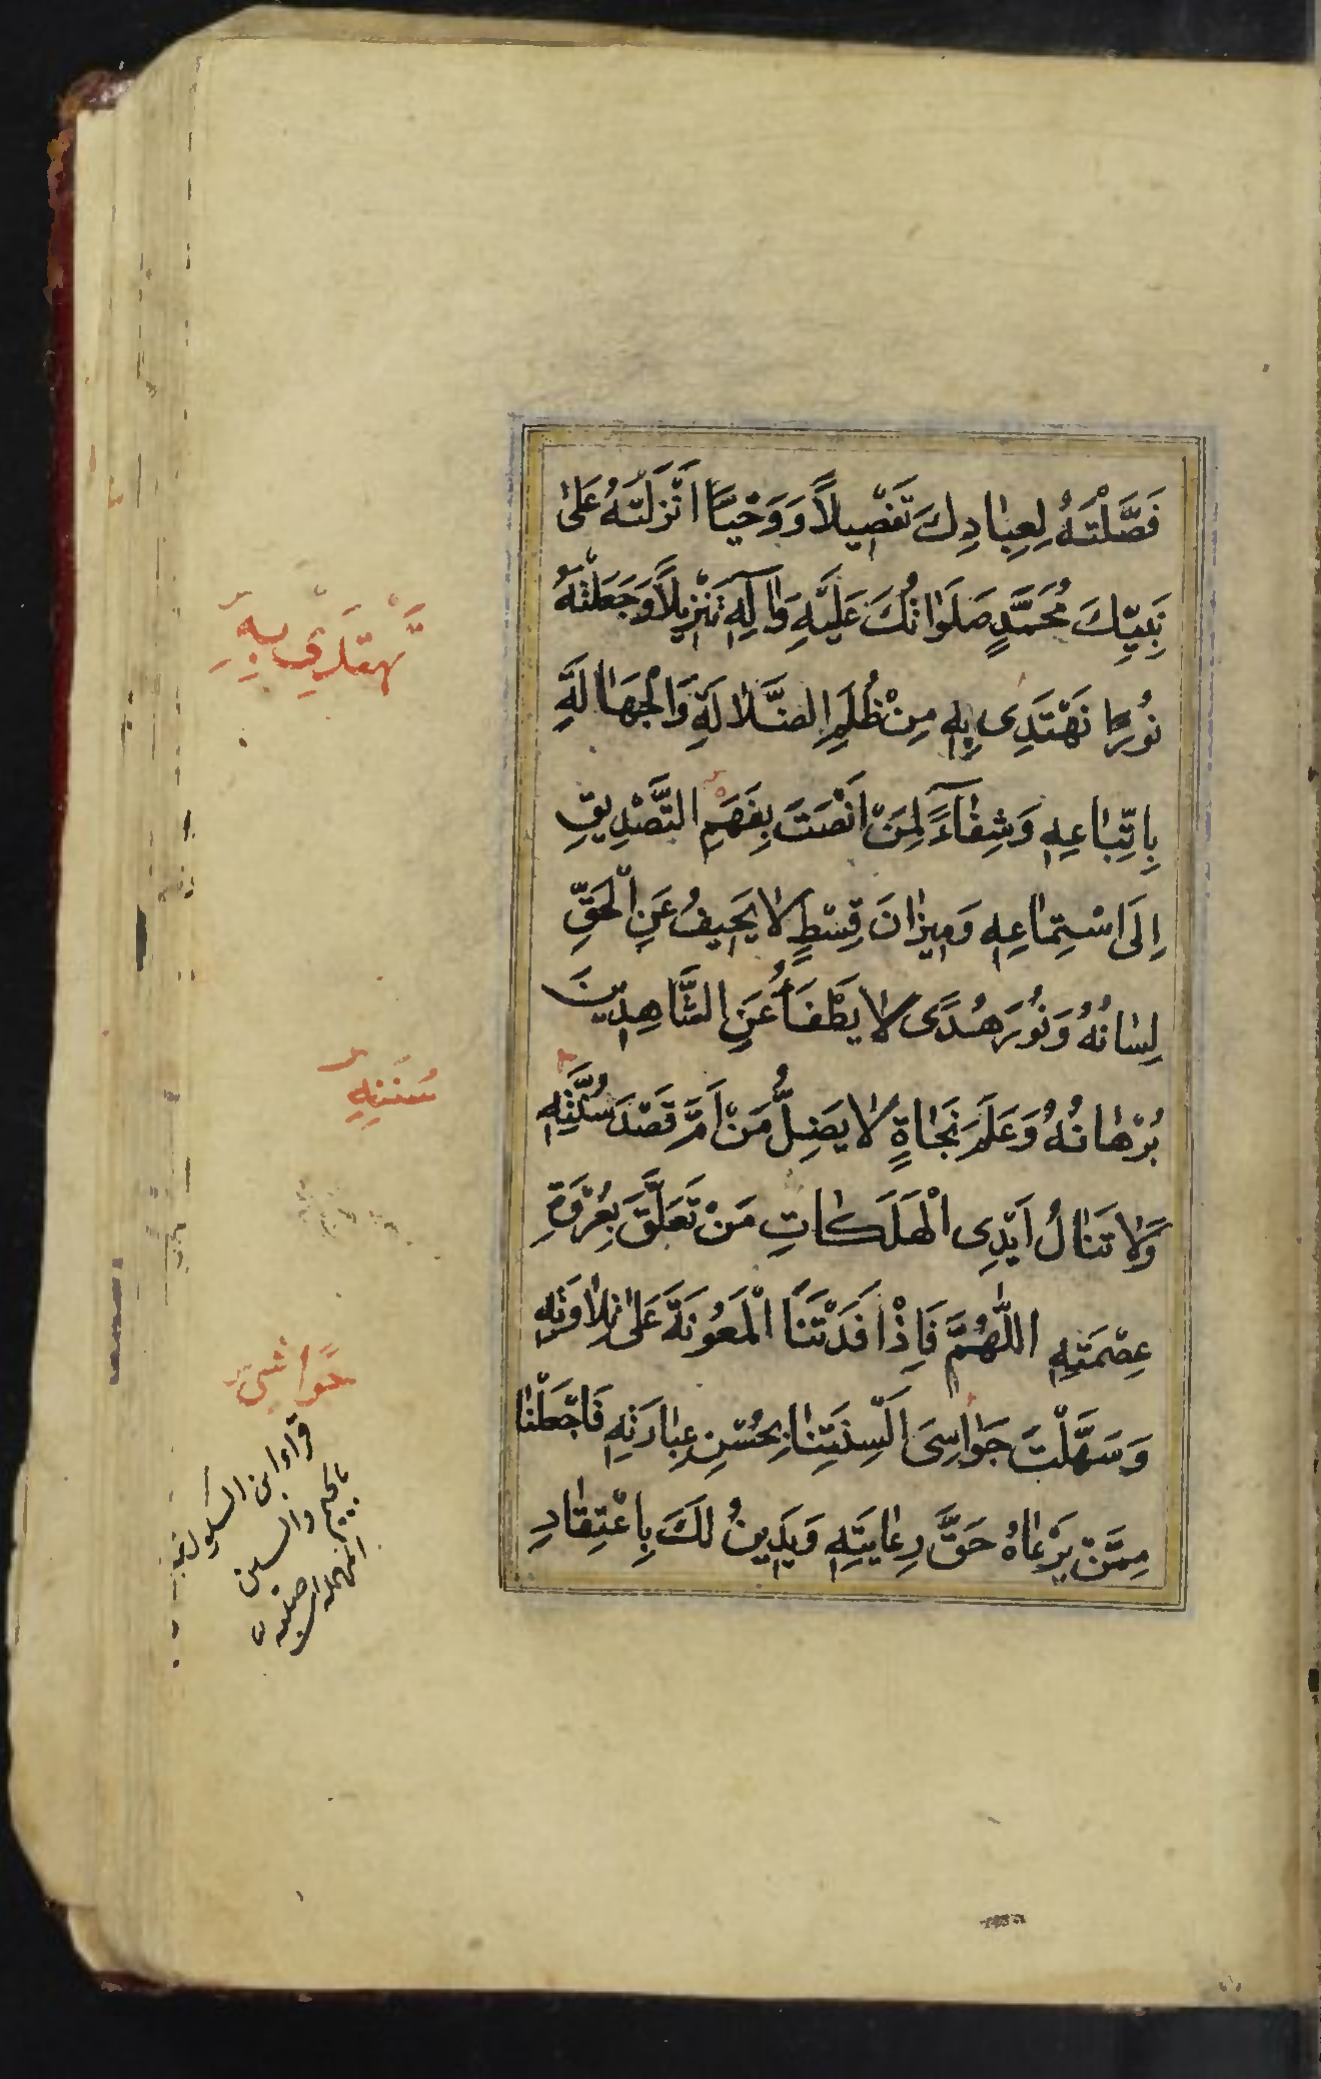 فَصَّلْتَهُ لِعِبَادِكَ تَفْصِيلاً وَوَحْيًا أَنْزَلْتَهُ عَلَى
نَبِيِّكَ مُحَمَّدٍ صَلَوَاتُكَ عَلَيْهِ وَآلِهِ تَنْزِيلاً وَجَعَلْتَهُ
نُورًا نَهْتَدِى بِهِ مِنْ ظُلَمِ الضَّلَالَةِ وَالْجَهَالَةِ
بِاتِّبَاعِهِ وَشِفَاءً لِمَنْ اَنْصَتَ بِفَهَمِ التَّصْدِيقِ
اِلَى اسْتِمَاعِهِ وَمِيزَانَ قِسْطٍ لَا يَحِيفُ عَنِ الْحَقِّ
لِسَانُهُ وَنُورَ هُدًى لَا يَطْفَأُ عَنِ الشَّاهِدِينَ
بُرْهَانُهُ وَعَلَمَ نَجَاةٍ لَا يَضِلُّ مَنْ اَمَّ قَصْدَ سُنَّتِهِ
وَلَا تَنَالُ اَيْدِى الْهَلَكَاتِ مَنْ تَعَلَّقَ بِعُرْوَةِ
عِصْمَتِهِ اللّٰهُمَّ فَاِذْ اَفَدْتَنَا الْمَعُونَةَ عَلَى تِلَاوَتِهِ
وَسَهَّلْتَ جَوَاسِىَ اَلْسِنَتِنَا بِحُسْنِ عِبَارَتِهِ فَاجْعَلْنَا
مِمَّنْ يَرْعَاهُ حَقَّ رِعَايَتِهِ وَيَدِينُ لَكَ بِاعْتِقَادِ
تَهْتَدِي بِهِ
سُنَنِهِ
حَوَاشِيَ
قراءة ابن السكون
بالجيم والسين
المهملة